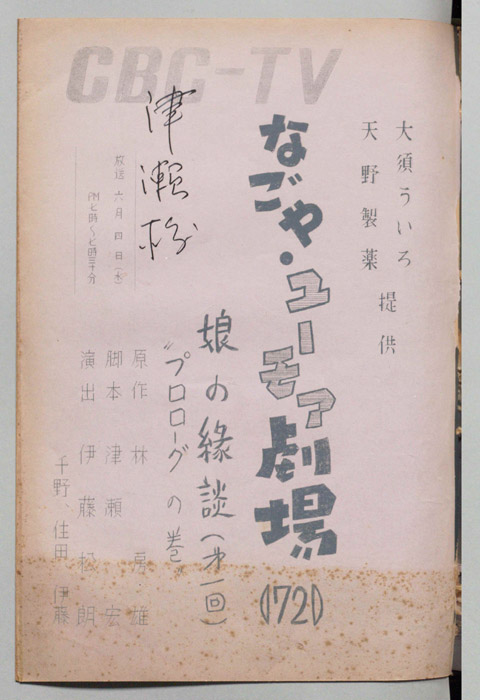 CBC-TV
大須ういろ
天野製薬
提供
なごや・ユーモア劇場
(172)
娘の縁談(第一回)
"プロローグの巻"
津瀬
放送 六月四日(水)
PM七時~七時三十分
原作 林房雄
脚本 津瀬宏
演出 伊藤松朗
千野、住田 伊藤